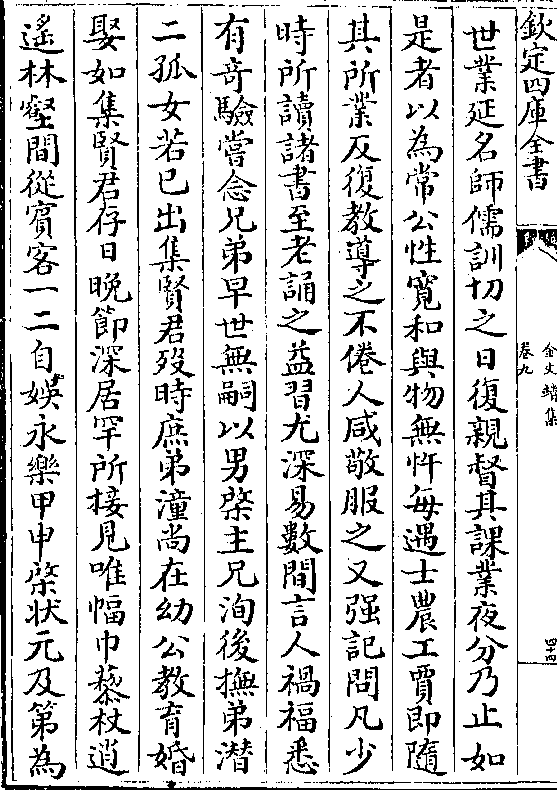 欽定四庫全書
金文靖集
卷九
四十四
世業延名師儒訓切之日復親督其課業夜分乃止如
是者以為常公性寬和與物無忤每遇士農工賈即隨
其所業反復教導之不倦人咸敬服之又强記問凡少
時所讀諸書至老誦之益習尤深易數間言人禍福悉
有奇驗嘗念兄弟早世無嗣以男棨主兄洵後撫弟潜
二孤女若已出集賢君歿時庶弟潼尚在幼公教育婚
娶如集賢君存日晚節深居罕所接見唯幅巾藜杖逍
遙林壑間從賓客一二自娛永樂甲申棨狀元及第為